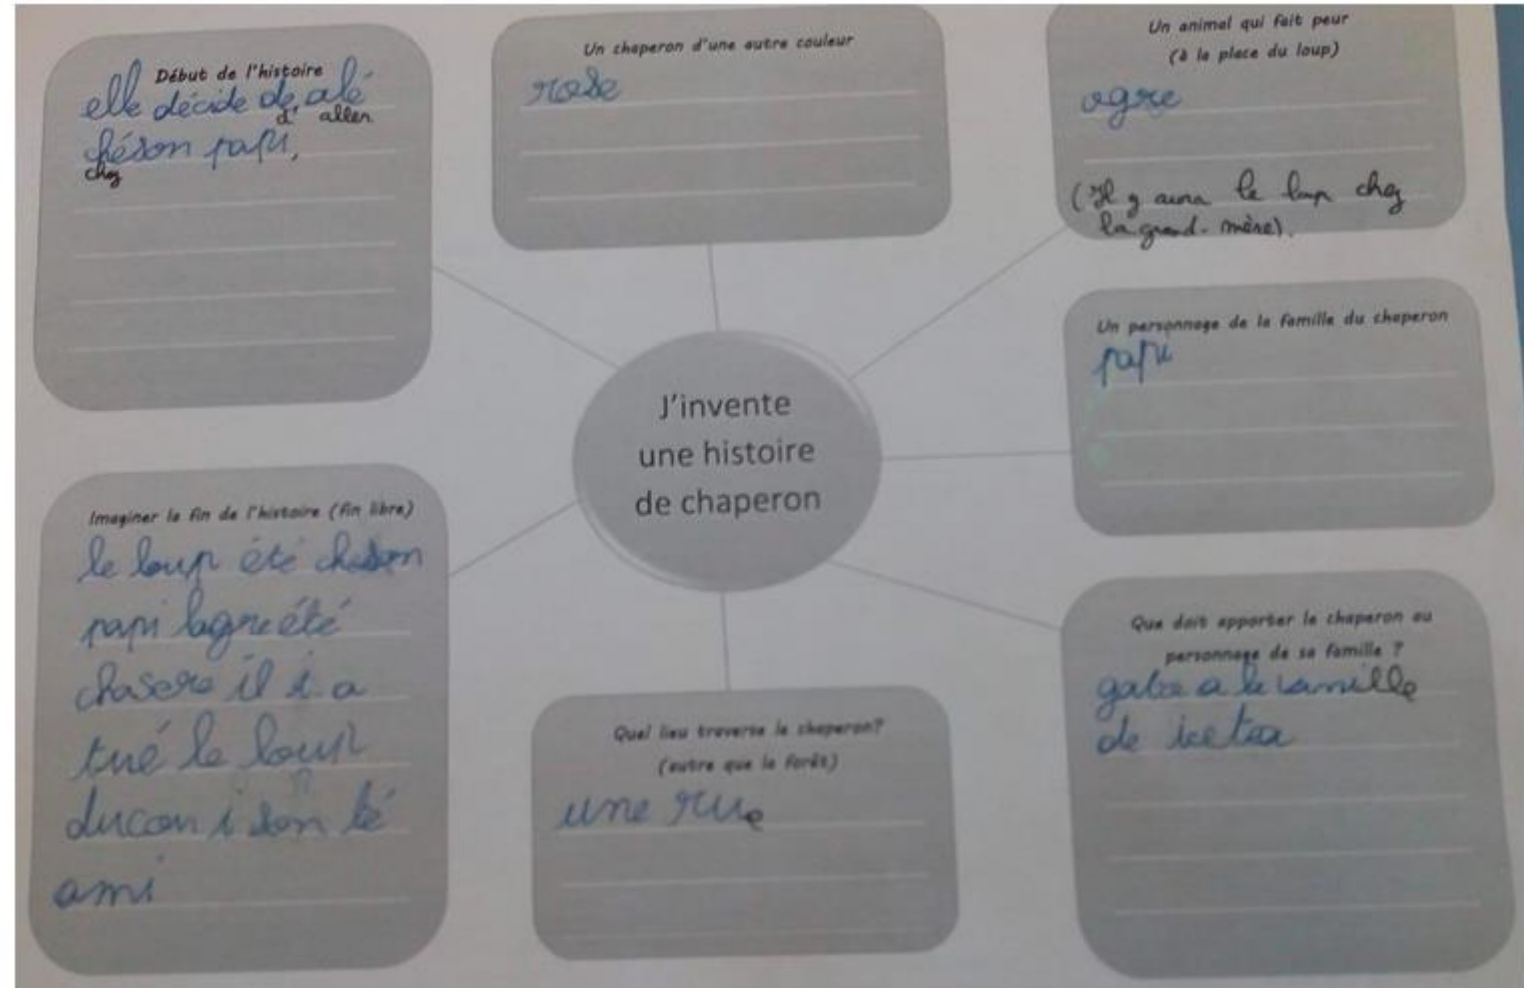 Début de l'histoire
elle décide de alé
d' aller
chéson papi,
chez
Un chaperon d'une autre couleur
rose
Un animal qui fait peur
(à la place du loup)
ogre
(Il y aura le loup chez
la grand-mère).
Un personnage de la famille du chaperon
papi
J'invente
une histoire
de chaperon
Imaginer la fin de l'histoire (fin libre)
le loup été cheson
papi logre été
chasere il i a
tué le loup
ducou i son té
ami
Quel lieu traverse le chaperon?
(autre que la forêt)
une rue
Que doit apporter le chaperon au
personnage de sa famille ?
a la vanille
de